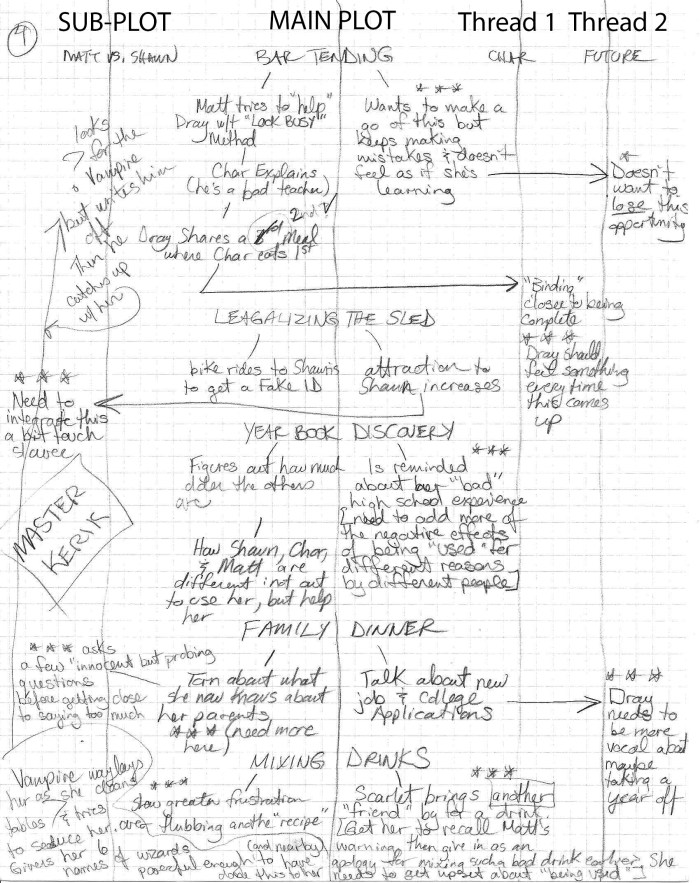 4
SUB-PLOT
MAIN PLOT
Thread 1
Thread 2
MATT VS. SHAWN
BAR TENDING
CHAR
FUTURE
Matt tries to "help"
Dray w/t "LOOK BUSY"
Method
* * *
Wants to make a
go of this but
keeps making
mistakes & doesn't
feel as if she's
learning
*
Doesn't
want to
lose this
opportunity
looks
for the
Vampire
but writes him
off
Then he
catches up
w/ her
Char Explains
(he's a bad teacher)
Dray Shares a 2nd Meal
where Char eats 1st
"Binding"
closer to being
complete
* * *
Dray should
feel something
every time
this comes
up
LEAGALIZING THE SLED
bike rides to Shawn's
to get a Fake ID
attraction to
Shawn increases
* * *
Need to
integrate this
a bit touch
YEAR BOOK DISCOVERY
Figures out how much
older the others
are
* * *
Is reminded
about her "bad"
high school experience
[need to add more of
the negative effects
of being "used" for
different reasons
by different people]
MASTER
KERIK
How Shawn, Char,
& Matt are
different & not out
to use her, but help
her
FAMILY DINNER
* * * asks
a few "innocent but probing
questions
before getting close
to saying too much
Torn about what
she now knows about
her parents
* * * (need more
here)
Talk about new
job & College
Applications
* * *
Dray
needs to
be more
vocal about
maybe
taking a
year off
MIXING DRINKS
Vampire waylays
her as she cleans
tables & tries
to seduce her.
Givers her 6
names of wizards
(and nearby)
powerful enough to have
done this to her
* * *
Show greater frustration
over flubbing anothe "recipe"
* * *
Scarlet brings another
"friend" by for a drink.
[Get her to recall Matt's
warning then give in as an
apology for mixing such a bad drink earlier. She
needs to get upset about "being used"]